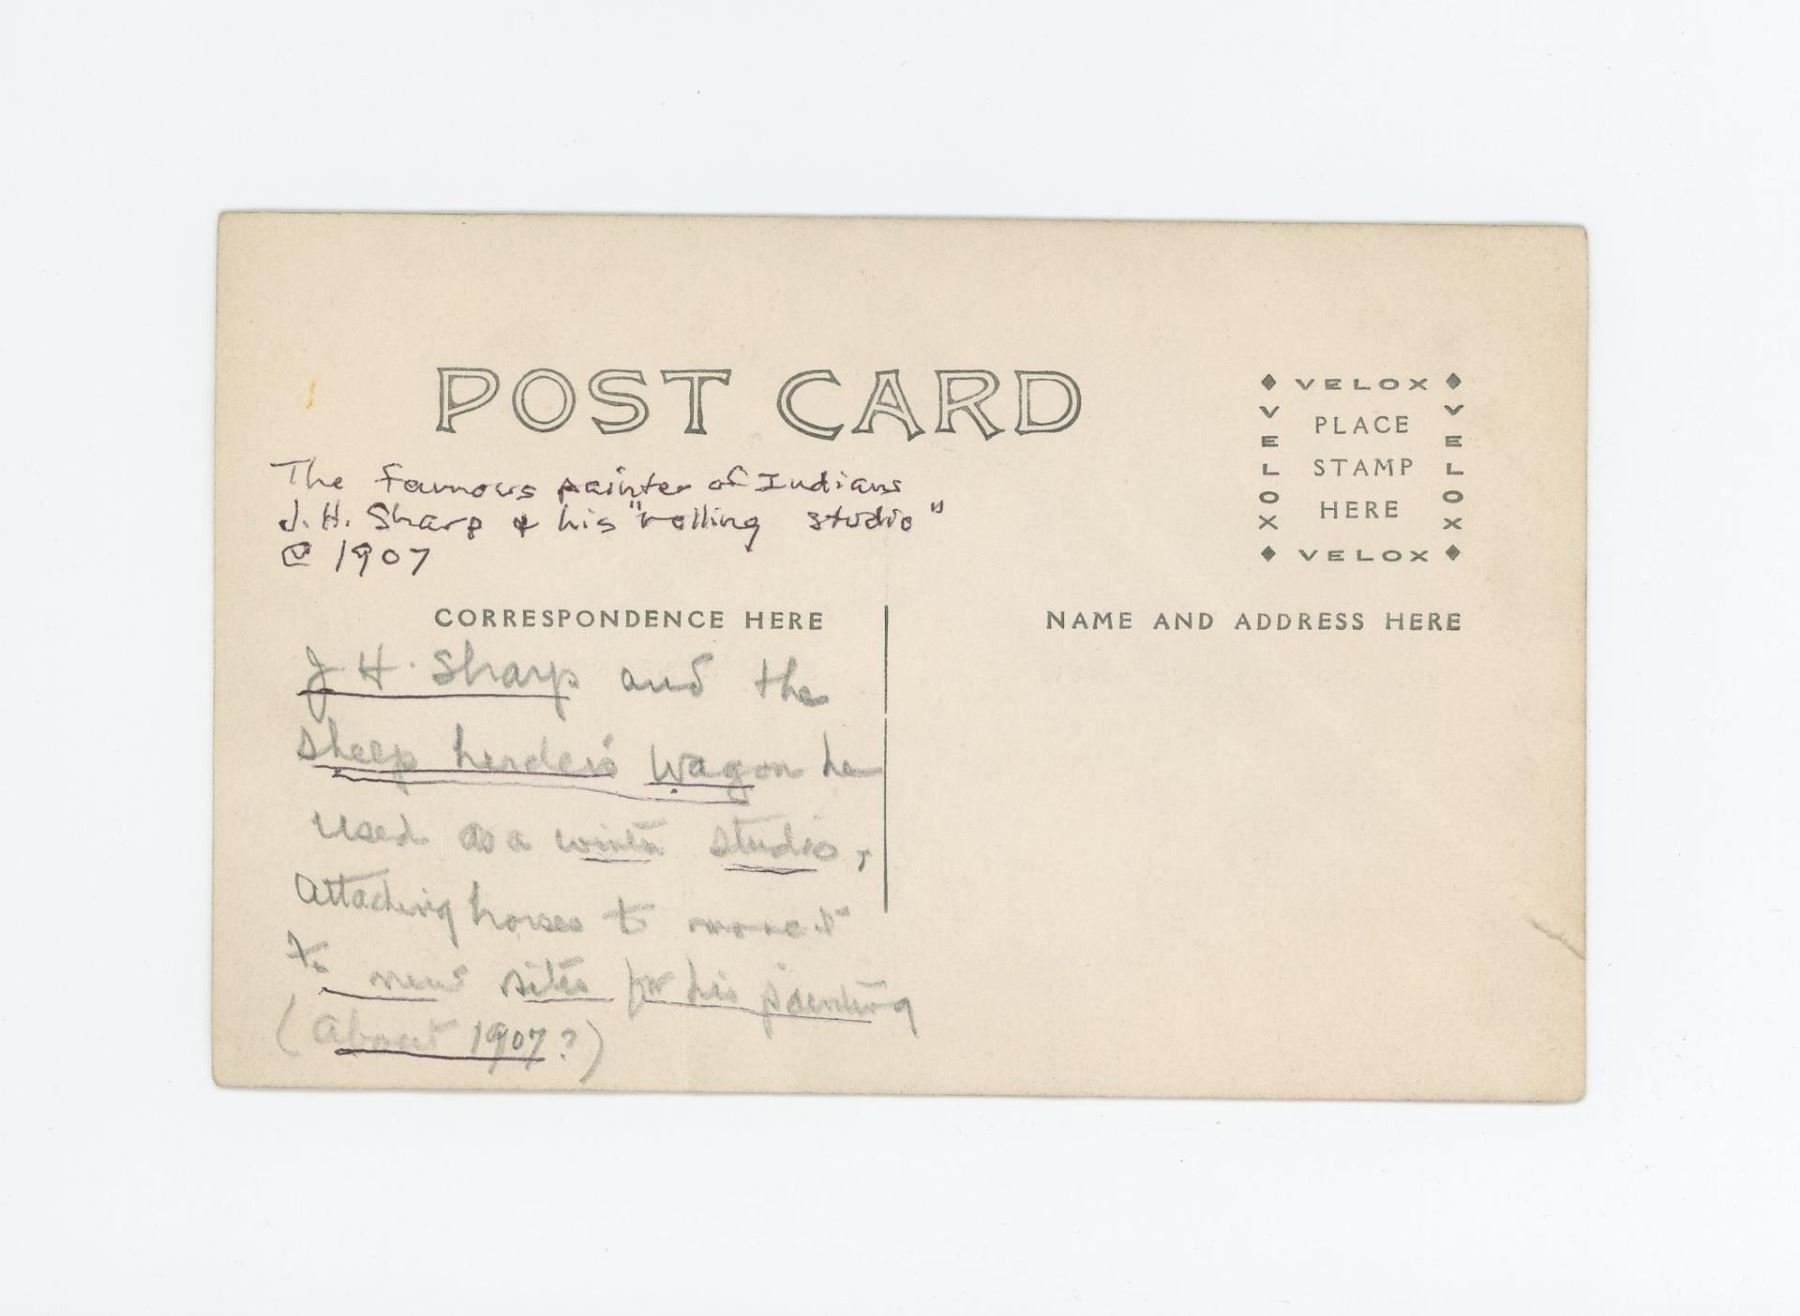 POST CARD
VELOX
VELOX
PLACE
STAMP
HERE
VELOX
VELOX
The famous painter of Indians
J. H. Sharp & his "rolling studio"
@ 1907
CORRESPONDENCE HERE
NAME AND ADDRESS HERE
J H. Sharp and the
Sheep herder's Wagon he
used as a winter studio,
attaching horses to move it
to new sites for his painting
(About 1907?)